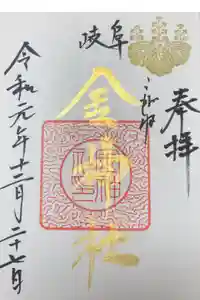 奉拝
岐阜
金神社
令和元年十二月二十七日